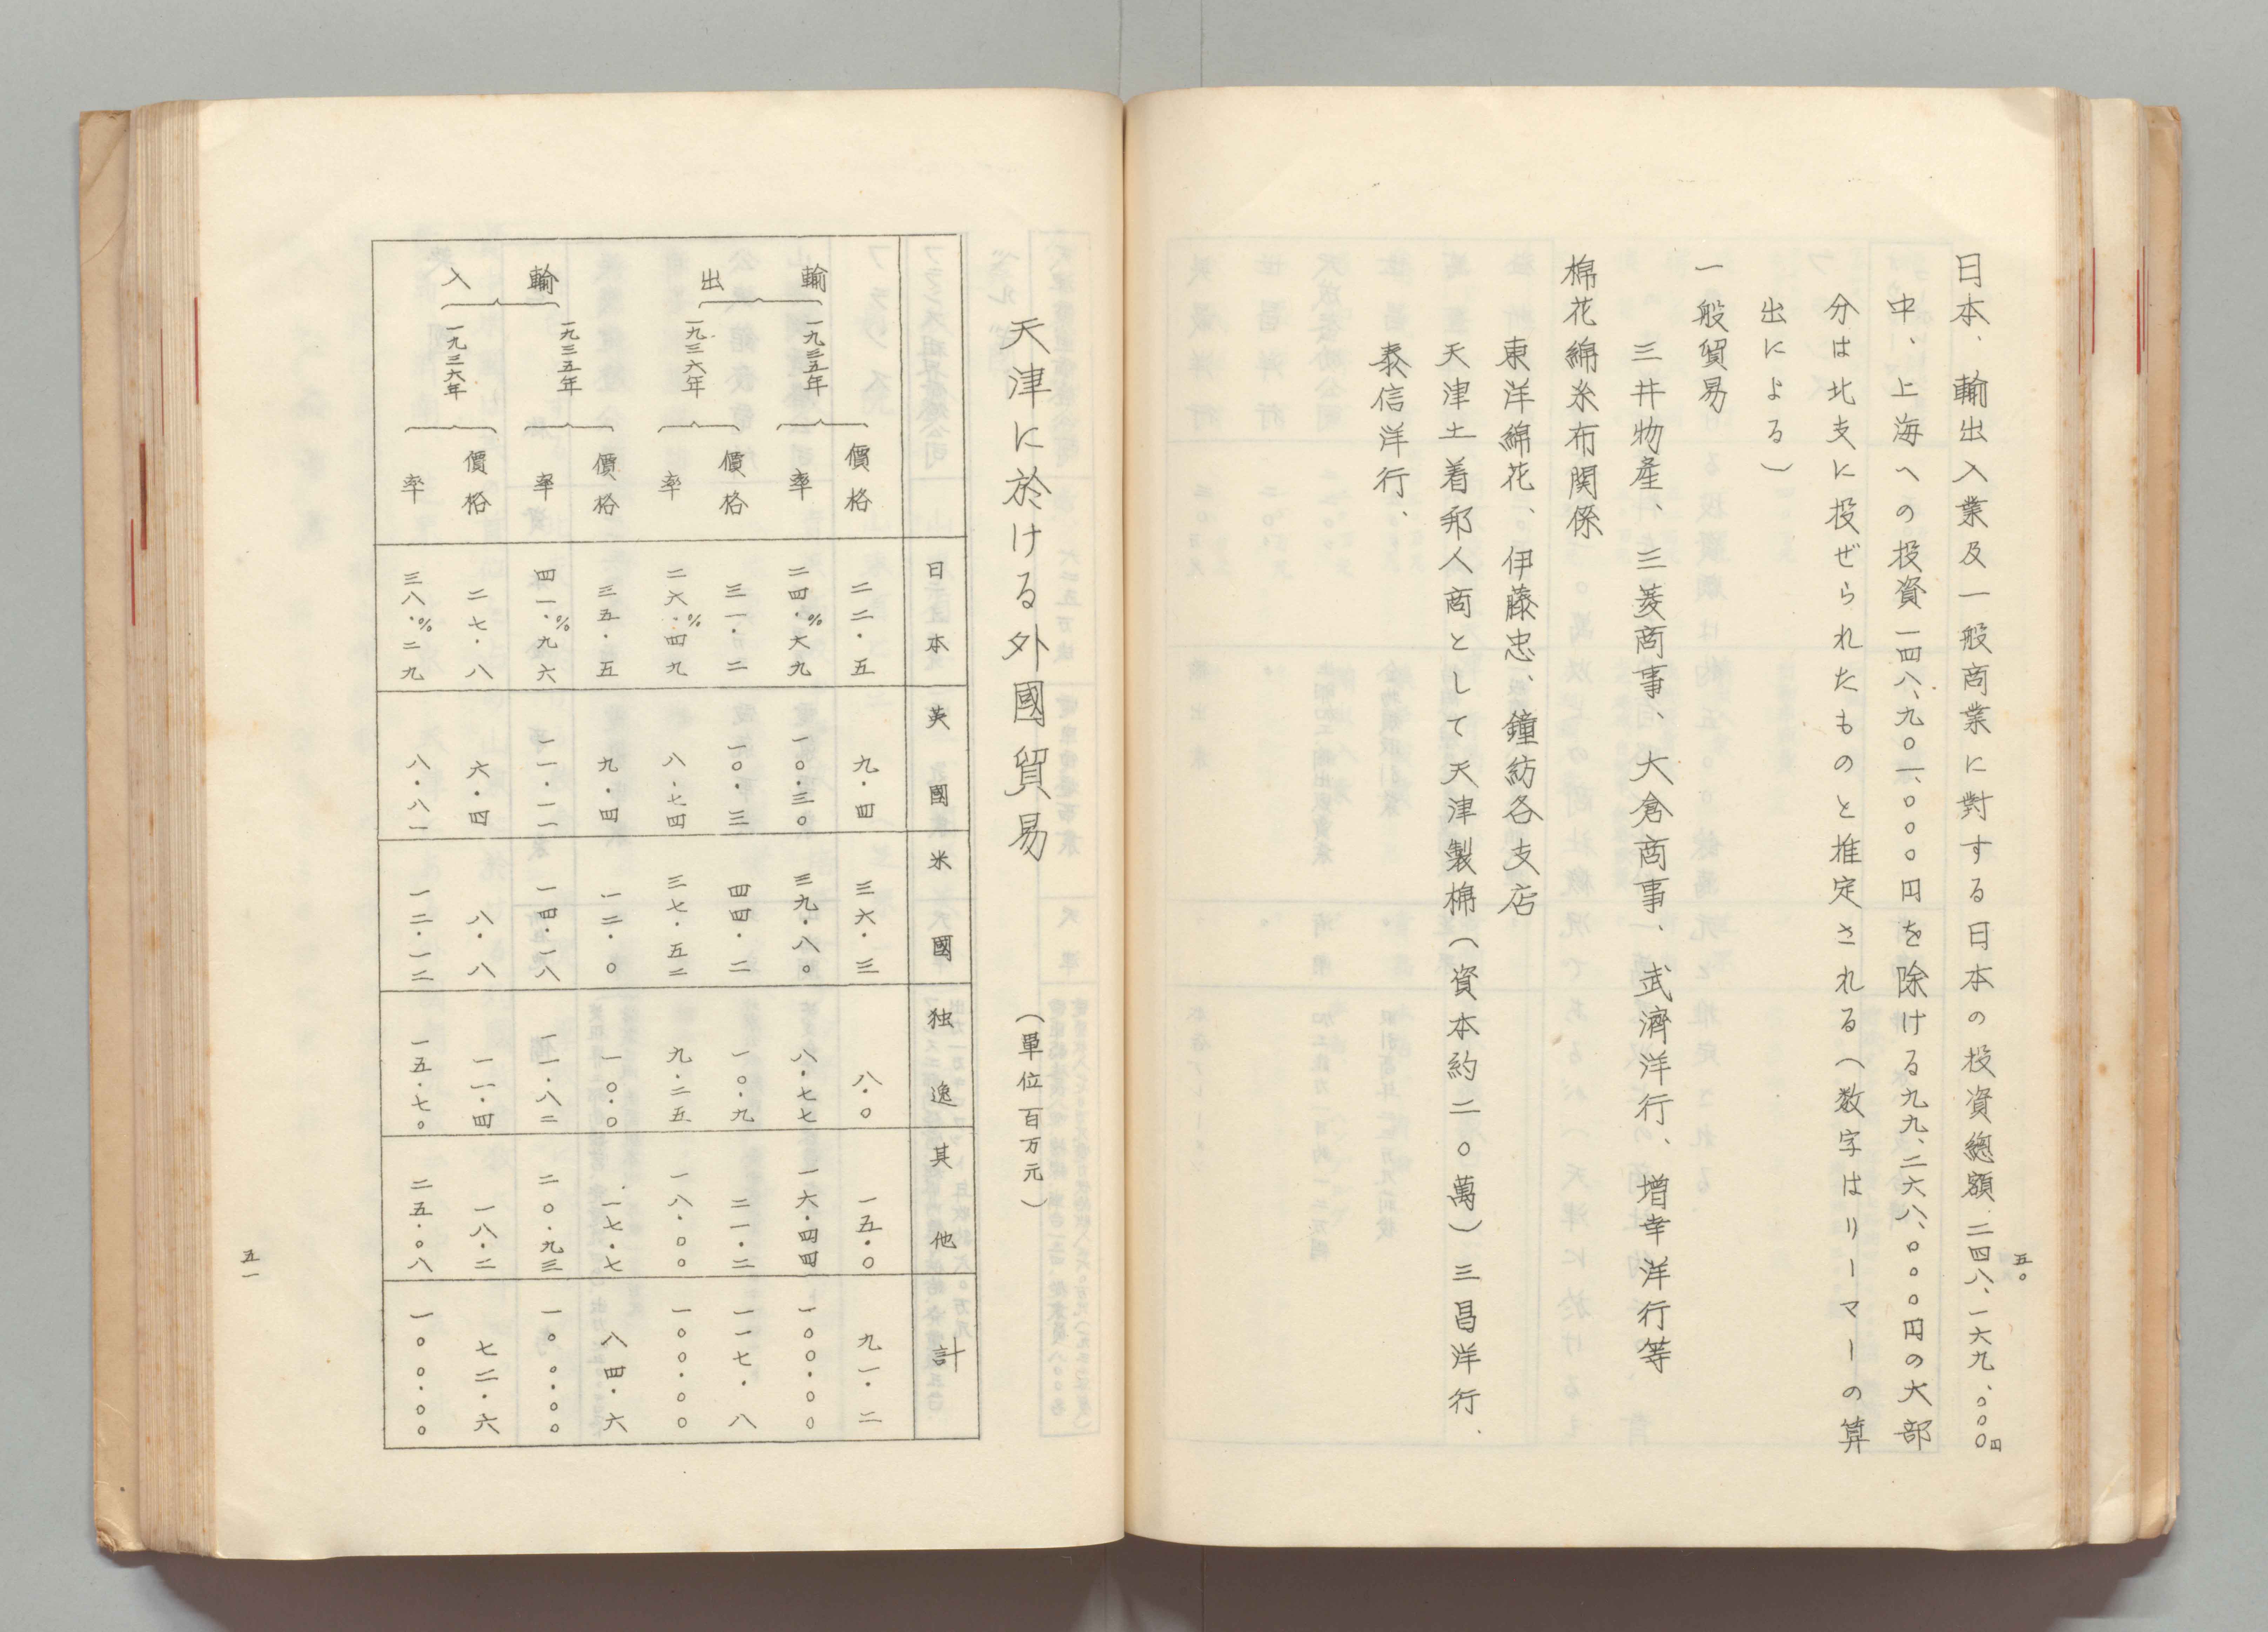 五〇
日本、輸出入業及一般商業に對する日本の投資總額二四八、一六九、〇〇〇円
中、上海への投資一四八、九〇一、〇〇〇円を除ける九九、二六八、〇〇〇円の大部
分は北支に投ぜられたものと推定される（数字はリーマーの算
出による）
一般貿易
三井物産、三菱商事、大倉商事、武濟洋行、増幸洋行等
棉花綿糸布関係
東洋綿花、伊藤忠、鐘紡各支店
天津土着邦人商として天津製棉（資本約二〇萬）三昌洋行、
泰信洋行、
天津に於ける外國貿易　（單位百万元）
日本　英國　米國　独逸　其他　計
輸出　一九三五年　價格　二二・五　九・四　三六・三　八・〇　一五・〇　九一・二
率　二四・六九%　一〇・三〇　三九・八〇　八・七七　一六・四四　一〇〇・〇〇
一九三六年　價格　三一・二　一〇・三　四四・二　一〇・九　二一・二　一一七・八
率　二六・四九%　八・七四　三七・五二　九・二五　一八・〇〇　一〇〇・〇〇
輸入　一九三五年　價格　三五・五　九・四　一二・〇　一〇・〇　一七・七　八四・六
率　四一・九六%　一一・一一　一四・一八　一一・八二　二〇・九三　一〇〇・〇〇
一九三六年　價格　二七・八　六・四　八・八　一一・四　一八・二　七二・六
率　三八・二九%　八・八一　一二・一二　一五・七〇　二五・〇八　一〇〇・〇〇
五一